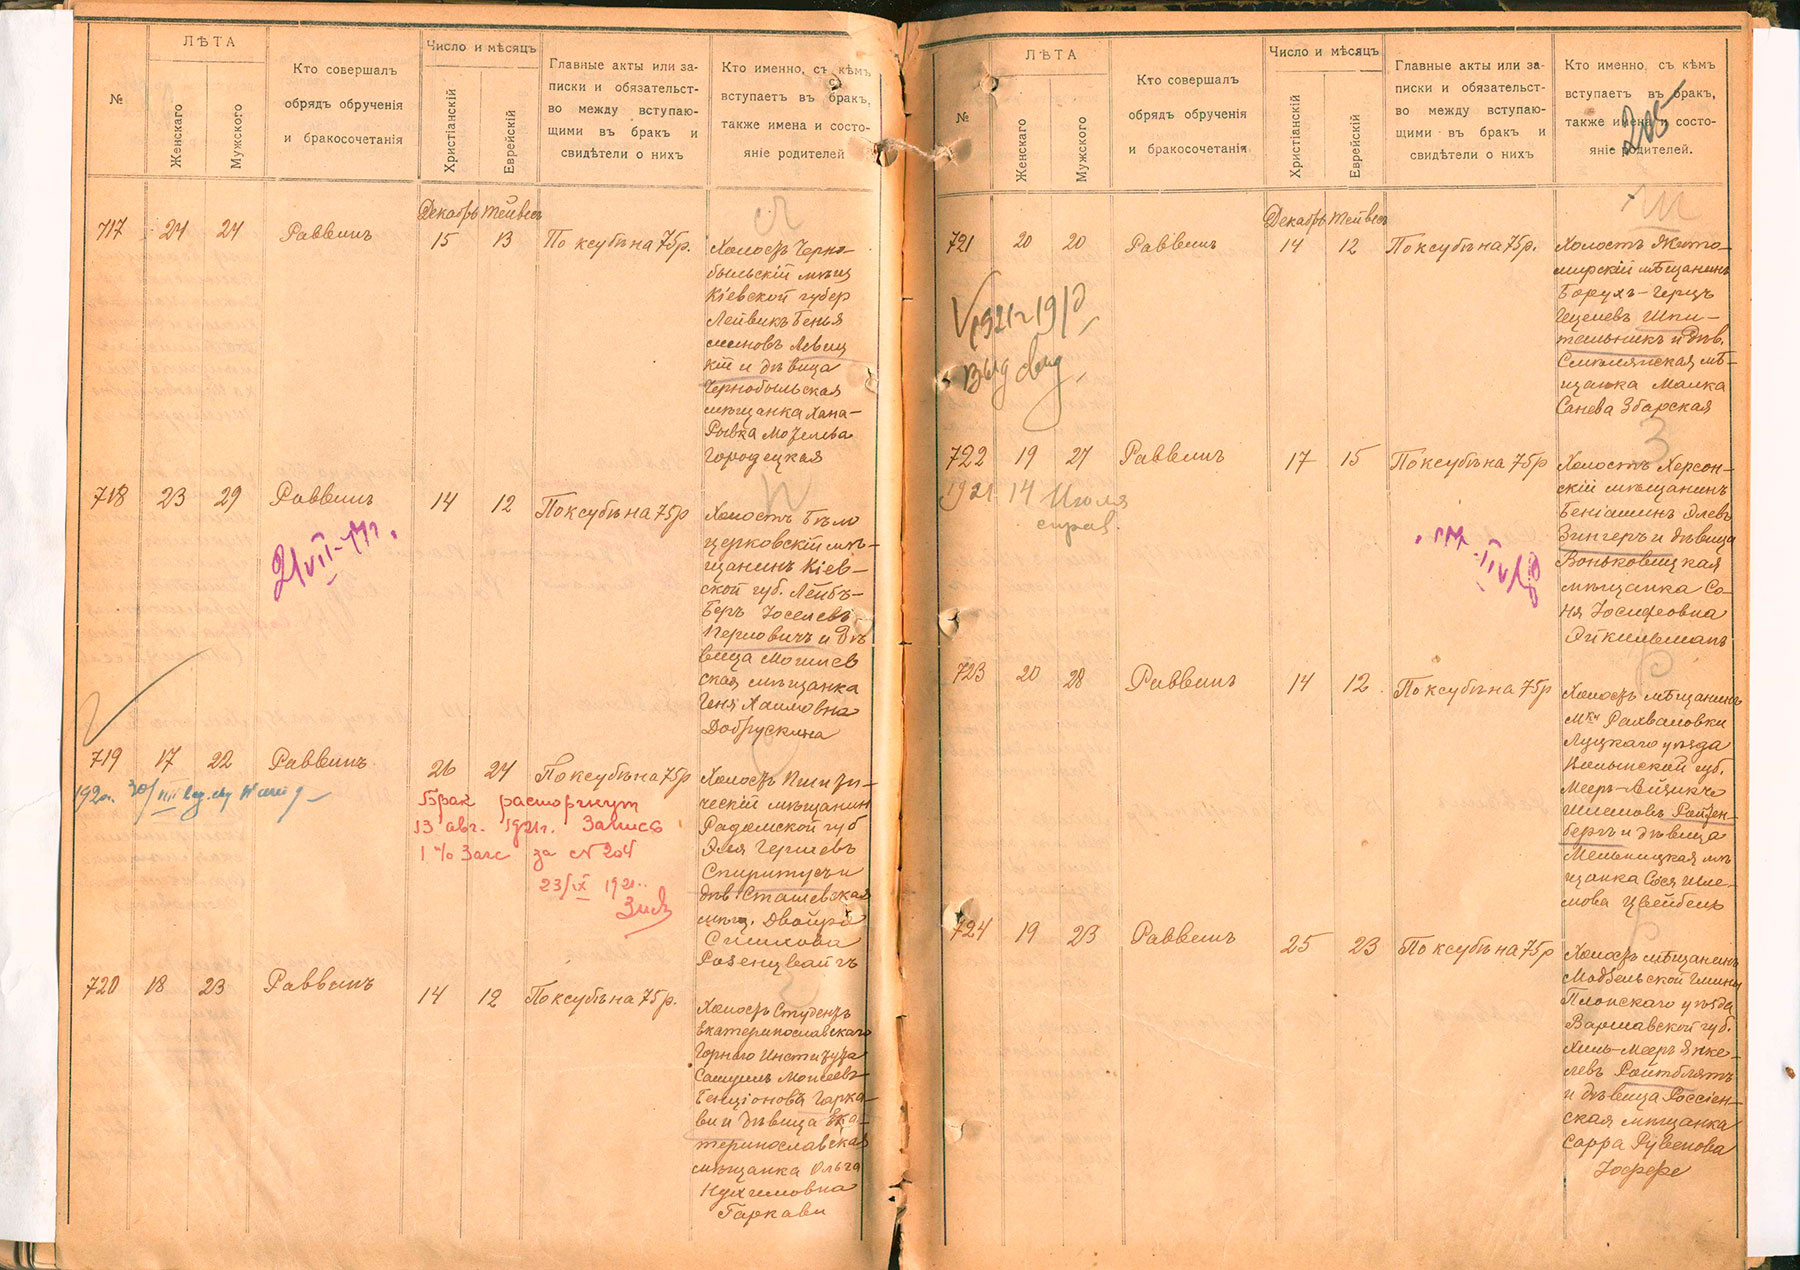 №
ЛѢТА
Женскаго
Мужского
Кто совершалъ
обрядъ обрученія
и бракосочетанія
Число и мѣсяцъ
Христіанскій
Еврейскій
Главные акты или за-
писки и обязательст-
во между вступаю-
щими въ бракъ и
свидѣтели о нихъ
Кто именно, съ кѣмъ
вступаетъ въ бракъ,
также имена и состо-
яніе родителей
Декабрь Тейвесъ
717 24 24 Раввинъ 15 13 По ксубѣ на 75р.
Холостъ Черно-
быльскій мѣщ
Кіевской губер
Лейвикъ Бенья
миновъ Левиц
кій и дѣвица
Чернобыльская
мѣщанка Хана-
Рывка Мозелева
Городецкая
718 23 29 Раввинъ 14 12 По ксубѣ на 75р
21 VII-
Холостъ Бѣло
церковскій мѣ-
щанинъ Кіев-
ской губ. Лейбъ-
Беръ Іоселевъ
Перловичъ и дѣ
вица Могилев
ская мѣщанка
Геня Хаимовна
Добрускина
719 17 22 Раввинъ 26 24 По ксубѣ на 75р
Брак расторгнут
13 авг. 1921г. Запись
1 % Загс за № 204
23/IX 1921..
Холостъ
ческій мѣщанин
Радомской губ
Эля Гершевъ
Спиритусъ и
дѣв. Сташевская
мѣщ. Двойра
Симхова
Розенцвайгъ
720 18 23 Раввинъ 14 12 По ксубѣ на 75р.
Холостъ Студентъ
Екатеринославскаго
Горнаго Института
Самуилъ Моисеевъ
Бенціоновъ Гарка-
ви и дѣвица Ека-
теринославская
мѣщанка Ольга
Нухимовна
Гаркави
№
ЛѢТА
Женскаго
Мужского
Кто совершалъ
обрядъ обрученія
и бракосочетанія
Число и мѣсяцъ
Христіанскій
Еврейскій
Главные акты или за-
писки и обязательст-
во между вступаю-
щими въ бракъ и
свидѣтели о нихъ
Кто именно, съ кѣмъ
вступаетъ въ бракъ,
также имена и состо-
яніе родителей.
205
Ш
Декабрь Тейвесъ
721 20 20 Раввинъ 14 12 По ксубѣ на 75р.
Холостъ Жито-
мирскій мѣщанинъ
Борухъ-Герцъ
Гецелевъ Шпи-
тальникъ и дѣв.
Смѣлянская мѣ-
щанка Малка
Санева Збарская
З
722 19 27 Раввинъ 17 15 По ксубѣ на 75р
1921 14 Июля
справ.
Холостъ Херсон-
скій мѣщанинъ
Беніаминъ Элевъ
Зингеръ и дѣвица
Воньковицкая
мѣщанка Со-
ня Іосифовна
Дикильманъ
723 20 28 Раввинъ 14 12 По ксубѣ на 75р
Р
Холостъ мѣщанинъ
Мки Рахваловки
Луцкаго уѣзда
Волынской губ.
Мееръ-Айзикъ
Шлемовъ Ройзен-
бергъ и дѣвица
Мельницкая мѣ
щанка Сося Шле-
мова Цвейбель
724 19 23 Раввинъ 25 23 По ксубѣ на 75р
Р
Холостъ мѣщанинъ
Модзельской гмины
Плонскаго уѣзда
Варшавской губ.
Хиль-Мееръ Янке-
левъ Ройтблятъ
и дѣвица Россіен-
ская мѣщанка
Сарра Рувенова
Іоффе